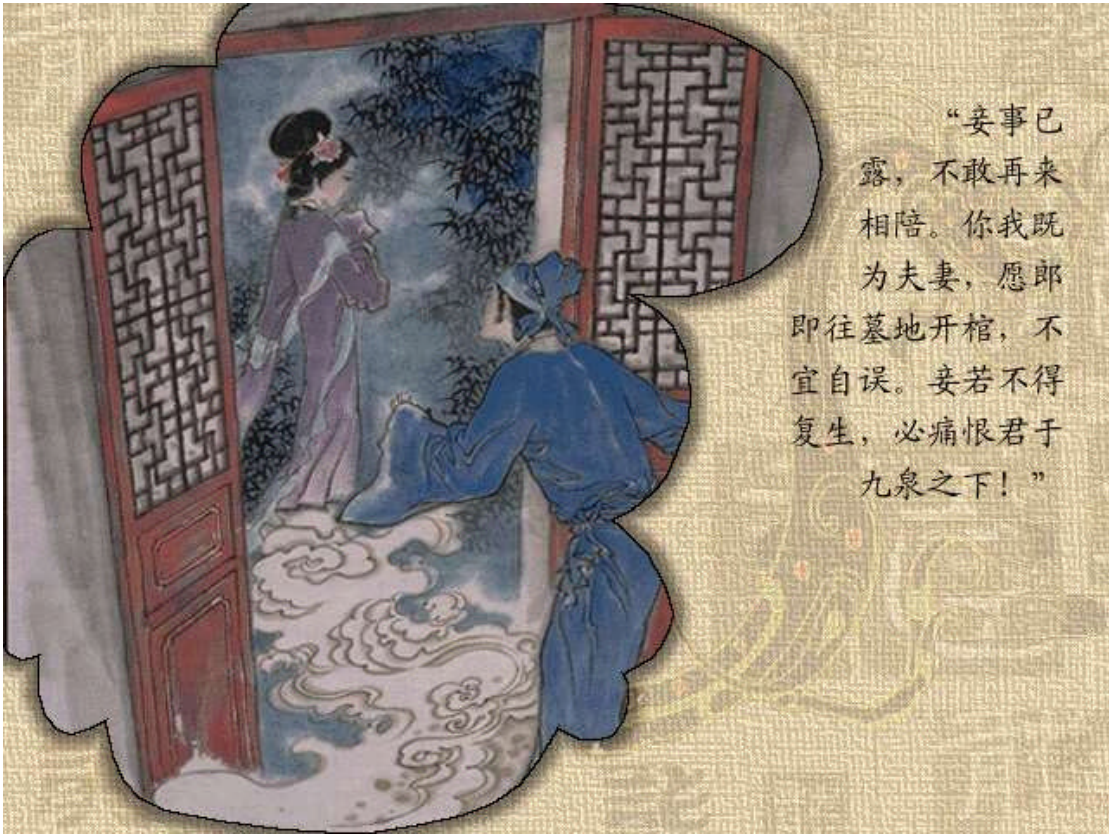 “妾事已
露，不敢再来
相陪。你我既
为夫妻，愿郎
即往墓地开棺，不
宜自误。妾若不得
复生，必痛恨君于
九泉之下！”